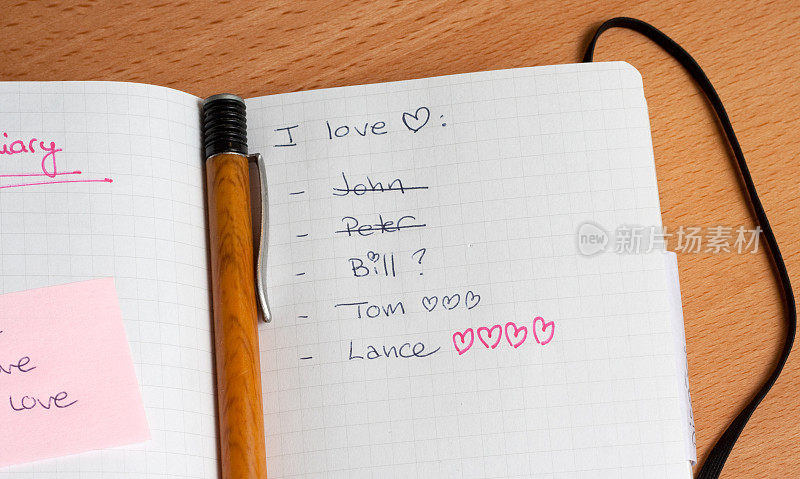 iary
I love ♡:
- John
- Peter
- Bill?
- Tom ♡♡♡
- Lance ♡♡♡♡
ve
love
new 新片场 素材